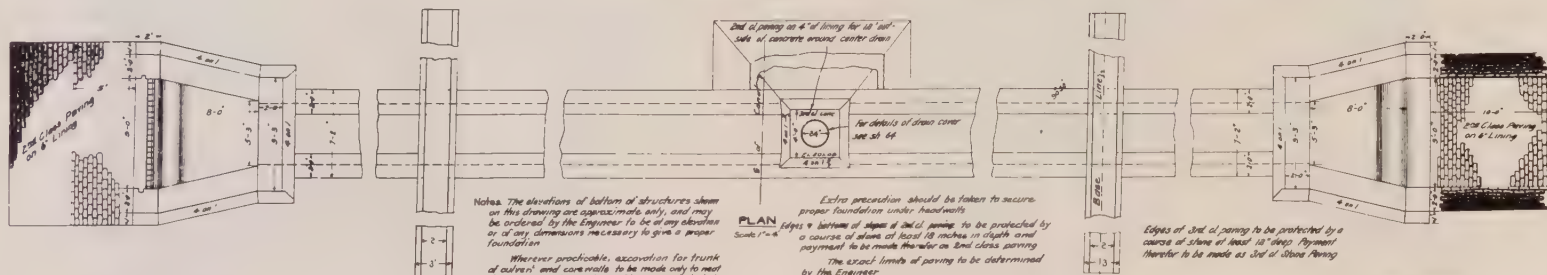 2nd cl paving on 4" of lining for 18" out-
side of concrete around center drain
2'
4 on 1
5'
2nd Class Paving
on 6" Lining
9'-0"
8'-0"
2'-0"
5'-3"
9'-3"
4 on 1
7'-2"
4 on 1
3rd cl conc
24"
For details of drain cover
see sh 64
4 on 1
Base Line
90°00'
2'-0"
4 on 1
7'-2"
4 on 1
9'-3"
5'-3"
8'-0"
9'-0"
10'-0"
2nd Class Paving
on 6" Lining
4 on 1
Notes The elevations of bottom of structures shown
on this drawing are approximate only, and may
be ordered by the Engineer to be at any elevation
or of any dimensions necessary to give a proper
foundation
Wherever practicable, excavation for trunk
of culvert and corewalls to be made only to neat
2
3'
PLAN
Scale 1"=4'
Extra precaution should be taken to secure
proper foundation under headwalls
Edges & bottoms of slopes of 2nd cl paving to be protected by
a course of stone at least 18 inches in depth and
payment to be made therefor as 2nd class paving
The exact limits of paving to be determined
by the Engineer
2
13
Edges of 3rd cl paving to be protected by a
course of stone at least 18" deep Payment
therefor to be made as 3rd cl Stone Paving